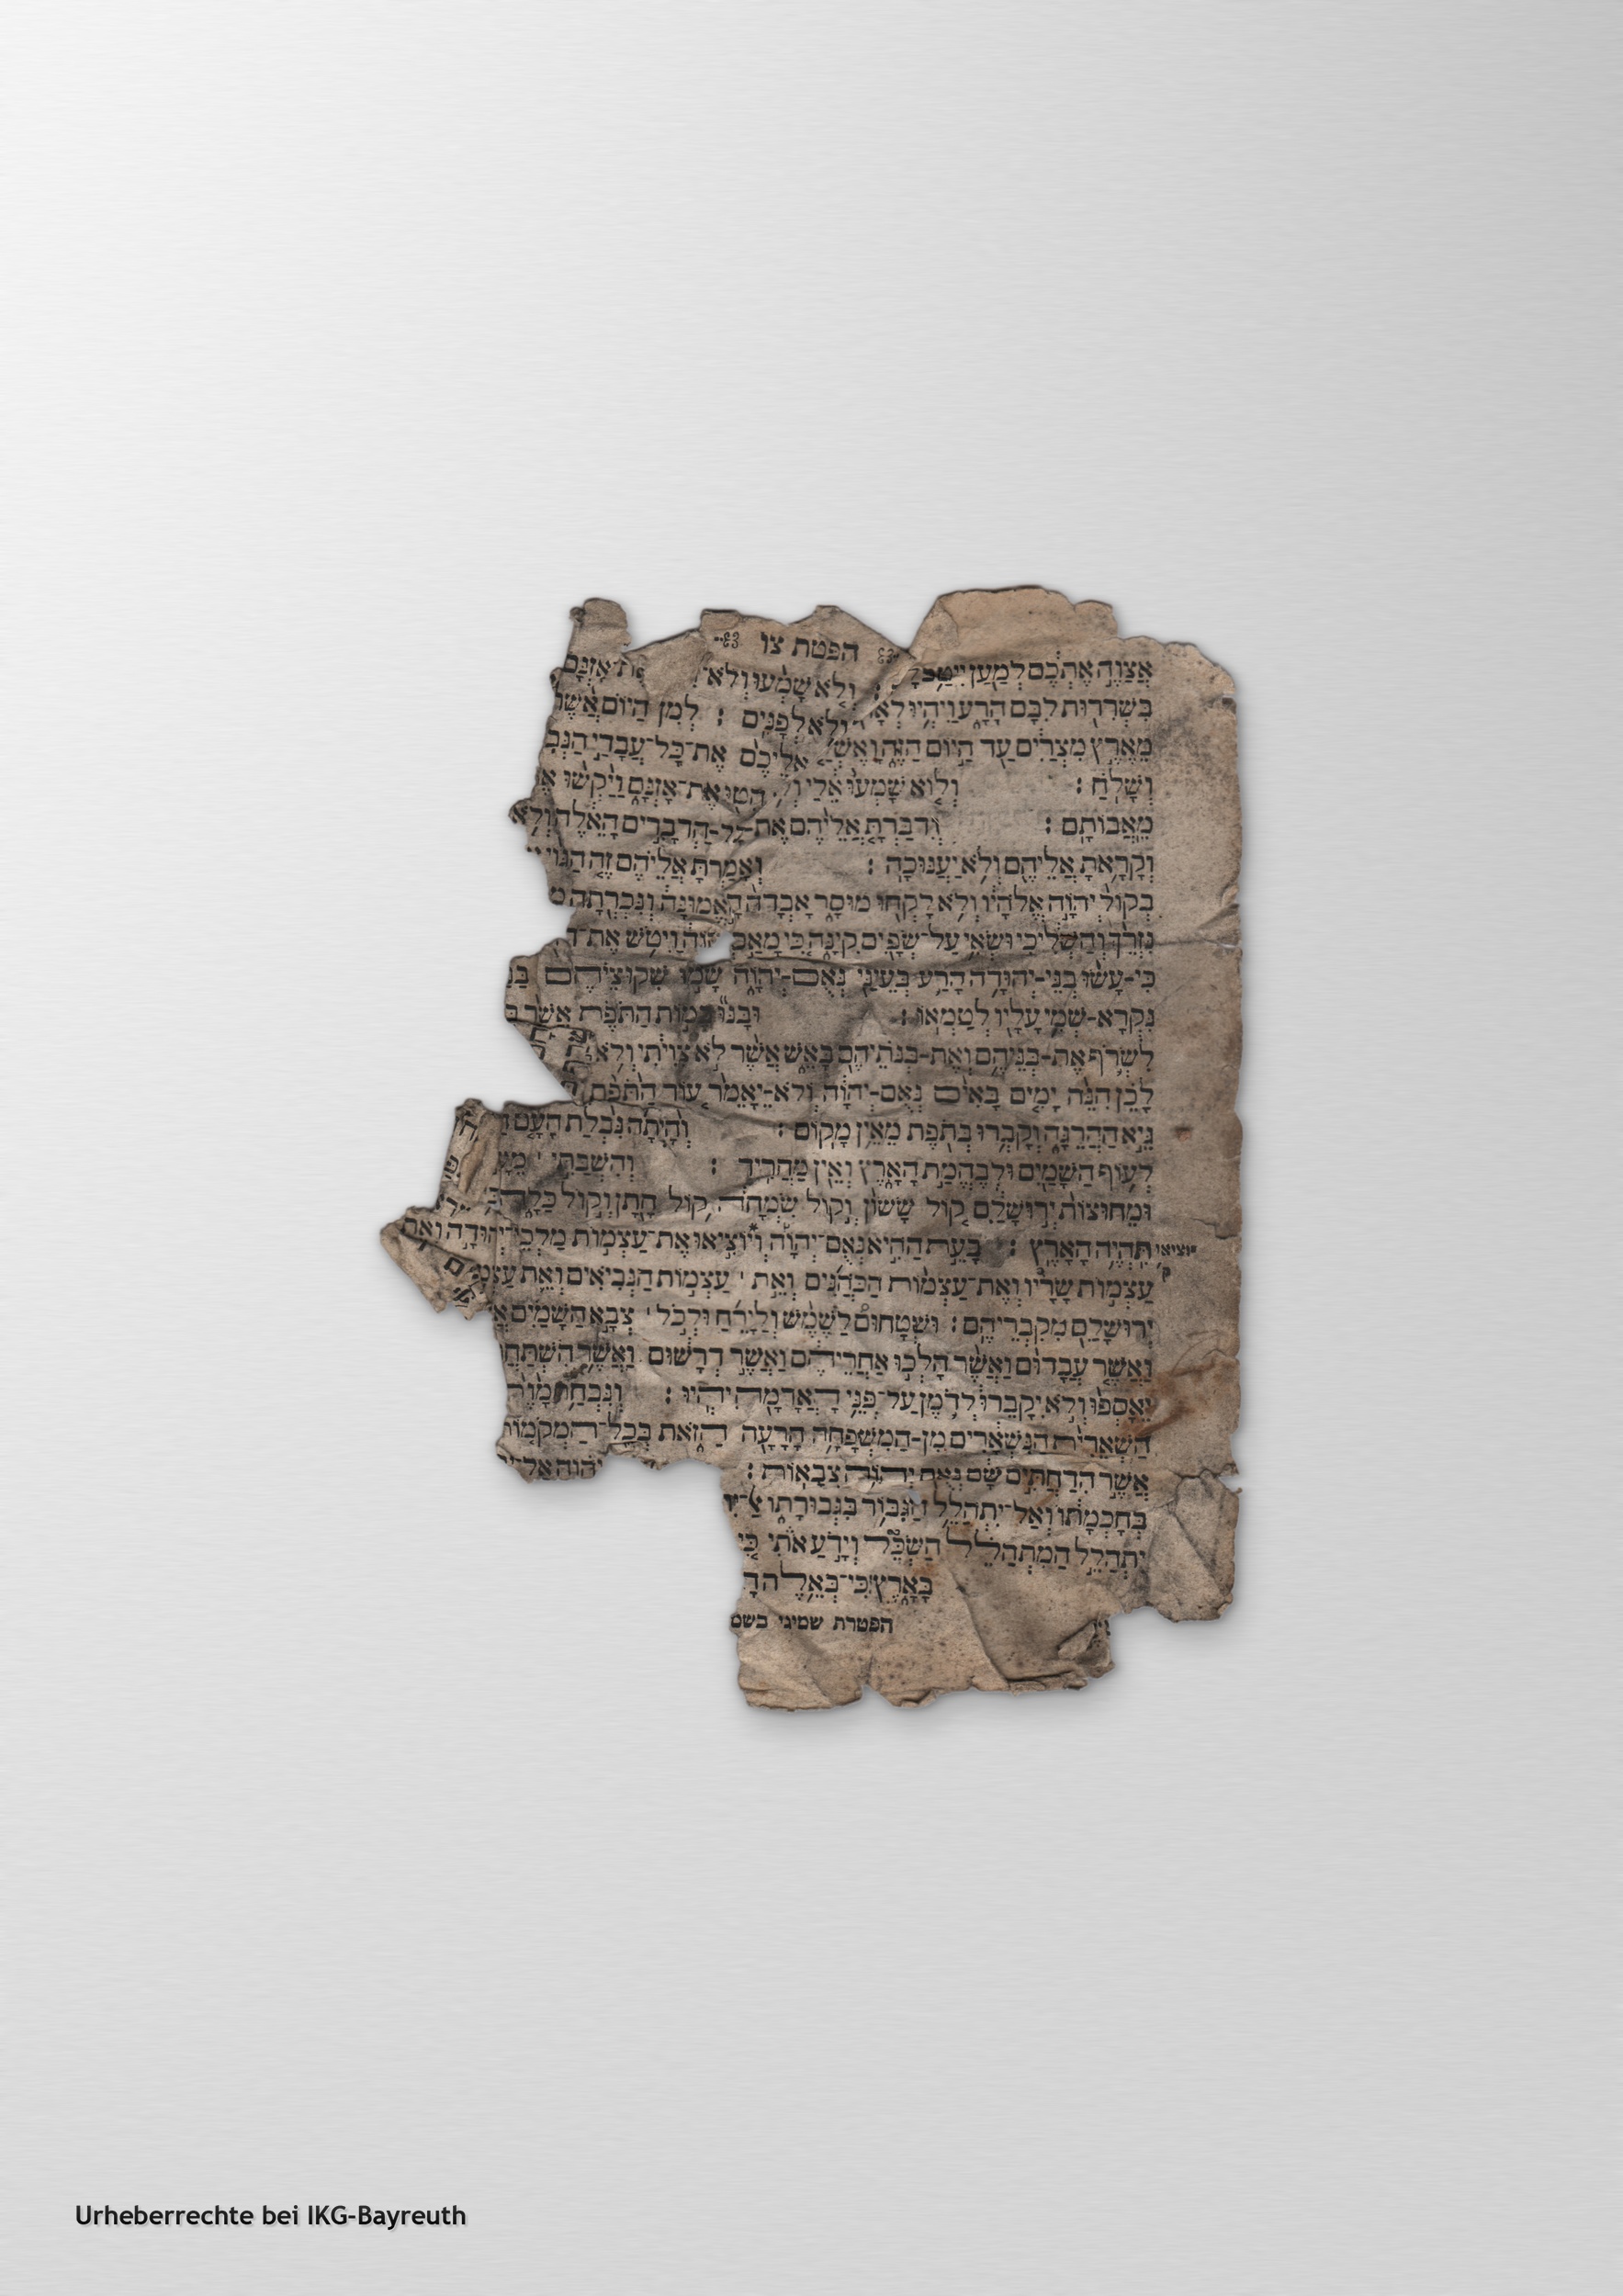 הפטת צו
אֲצַוֶּה אֶתְכֶם לְמַעַן יִיטַב וְלֹא שָׁמְעוּ וְלֹא אָזְנָם
בִּשְׁרִרוּת לִבָּם הָרָע וַיִּהְיוּ לְאָחוֹר וְלֹא לְפָנִים : לְמִן הַיּוֹם אֲשֶׁר
מֵאֶרֶץ מִצְרַיִם עַד הַיּוֹם הַזֶּה וָאֶשְׁ אֲלֵיכֶם אֶת־כָּל־עֲבָדַי הַנְּבִ
וְשָׁלֹחַ : וְלוֹא שָׁמְעוּ אֵלַי וְלֹא הִטּוּ אֶת־אָזְנָם וַיַּקְשׁוּ
מֵאֲבוֹתָם : וְדִבַּרְתָּ אֲלֵיהֶם אֶת־כָּל־הַדְּבָרִים הָאֵלֶּה וְלֹא
וְקָרָאתָ אֲלֵיהֶם וְלֹא יַעֲנוּכָה : וְאָמַרְתָּ אֲלֵיהֶם זֶה הַגּוֹי
בְּקוֹל יְהוָֹה אֱלֹהָיו וְלֹא לָקְחוּ מוּסָר אָבְדָה הָאֱמוּנָה וְנִכְרְתָה מ
נִזְרֵךְ וְהַשְׁלִיכִי וּשְׂאִי עַל־שְׁפָיִם קִינָה כִּי מָאַס וַיִּטֹּשׁ אֶת־ד
כִּי־עָשׂוּ בְנֵי־יְהוּדָה הָרַע בְּעֵינַי נְאֻם־יְהוָֹה שָׂמוּ שִׁקּוּצֵיהֶם בַּ
נִקְרָא־שְׁמִי עָלָיו לְטַמְּאוֹ : וּבָנוּ בָּמוֹת הַתֹּפֶת אֲשֶׁר בּ
לִשְׂרֹף אֶת־בְּנֵיהֶם וְאֶת־בְּנֹתֵיהֶם בָּאֵשׁ אֲשֶׁר לֹא צִוִּיתִי וְלֹא
לָכֵן הִנֵּה יָמִים בָּאִים נְאֻם־יְהוָֹה וְלֹא־יֵאָמֵר עוֹד הַתֹּפֶת
גֵּיא הַהֲרֵגָה וְקָבְרוּ בְתֹפֶת מֵאֵין מָקוֹם : וְהָיְתָה נִבְלַת הָעָם הַ
לְעוֹף הַשָּׁמַיִם וּלְבֶהֱמַת הָאָרֶץ וְאֵין מַחֲרִיד : וְהִשְׁבַּתִּי מֵעָ
וּמֵחוּצוֹת יְרוּשָׁלִַם קוֹל שָׂשׂוֹן וְקוֹל שִׂמְחָה קוֹל חָתָן וְקוֹל כַּלָּה
תִּהְיֶה הָאָרֶץ : בָּעֵת הַהִיא נְאֻם־יְהוָֹה וְיוֹצִיאוּ אֶת־עַצְמוֹת מַלְכֵי־יְהוּדָה וְאֶת
יוציאו ק
עַצְמוֹת שָׂרָיו וְאֶת־עַצְמוֹת הַכֹּהֲנִים וְאֵת ׀ עַצְמוֹת הַנְּבִיאִים וְאֵת עַצְמ
יְרוּשָׁלִָם מִקִּבְרֵיהֶם : וּשְׁטָחוּם לַשֶּׁמֶשׁ וְלַיָּרֵחַ וּלְכֹל ׀ צְבָא הַשָּׁמַיִם אֲ
וַאֲשֶׁר עֲבָדוּם וַאֲשֶׁר הָלְכוּ אַחֲרֵיהֶם וַאֲשֶׁר דְּרָשׁוּם וַאֲשֶׁר הִשְׁתַּחֲ
יֵאָסְפוּ וְלֹא יִקָּבֵרוּ לְדֹמֶן עַל־פְּנֵי הָאֲדָמָה יִהְיוּ : וְנִבְחַר מָוֶת
הַשְּׁאֵרִית הַנִּשְׁאָרִים מִן־הַמִּשְׁפָּחָה הָרָעָה הַזֹּאת בְּכָל־הַמְּקֹמוֹת
אֲשֶׁר הִדַּחְתִּים שָׁם נְאֻם יְהוָֹה צְבָאוֹת : יְהוָה אַל־יִ
בְּחָכְמָתוֹ וְאַל־יִתְהַלֵּל הַגִּבּוֹר בִּגְבוּרָתוֹ אַל־יִ
יִתְהַלֵּל הַמִּתְהַלֵּל הַשְׂכֵּל וְיָדֹעַ אֹתִי כִּי
בָּאָרֶץ כִּי־בְאֵלֶּה
הפטרת שמיני בשם
Urheberrechte bei IKG-Bayreuth